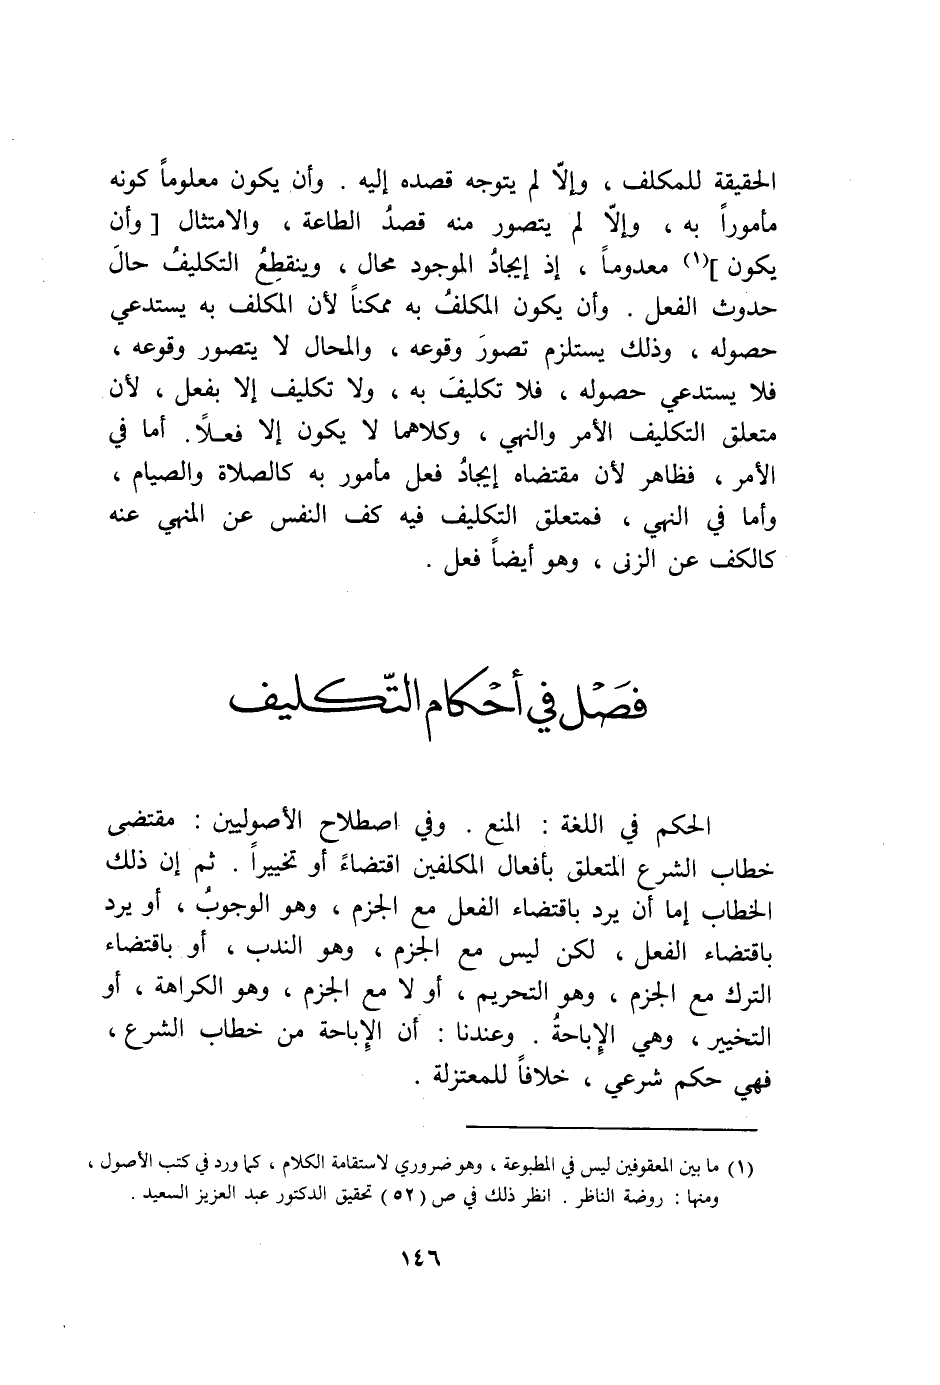 الحقيقة للمكلف ، وإلاّ لم يتوجه قصده إليه . وأن يكون معلوماً كونه
مأموراً به ، وإلاّ لم يتصور منه قصدُ الطاعة ، والامتثال [ وأن
يكون ](١) معدوماً ، إذ إيجادُ الموجود محال ، وينقطِعُ التكليفُ حالَ
حدوث الفعل . وأن يكون المكلفُ به ممكناً لأن المكلف به يستدعي
حصوله ، وذلك يستلزم تصورَ وقوعه ، والمحال لا يتصور وقوعه ،
فلا يستدعي حصوله ، فلا تكليفَ به ، ولا تكليف إلا بفعل ، لأن
متعلق التكليف الأمر والنهي ، وكلاهما لا يكون إلا فعلاً. أما في
الأمر ، فظاهر لأن مقتضاه إيجادُ فعل مأمور به كالصلاة والصيام ،
وأما في النهي ، فمتعلق التكليف فيه كف النفس عن المنهي عنه
كالكف عن الزنى ، وهو أيضاً فعل .
فَصْل في أحْكام التّكليف
الحكم في اللغة : المنع . وفي اصطلاح الأصوليين : مقتضى
خطاب الشرع المتعلق بأفعال المكلفين اقتضاءً أو تخييراً . ثم إن ذلك
الخطاب إما أن يرد باقتضاء الفعل مع الجزم ، وهو الوجوبُ ، أو يرد
باقتضاء الفعل ، لكن ليس مع الجزم ، وهو الندب ، أو باقتضاء
الترك مع الجزم ، وهو التحريم ، أو لا مع الجزم ، وهو الكراهة ، أو
التخيير ، وهي الإباحةُ . وعندنا : أن الإباحة من خطاب الشرع ،
فهي حكم شرعي ، خلافاً للمعتزلة .
(١) ما بين المعقوفين ليس في المطبوعة ، وهو ضروري لاستقامة الكلام ، كما ورد في كتب الأصول ،
ومنها : روضة الناظر . انظر ذلك في ص (٥٢) تحقيق الدكتور عبد العزيز السعيد .
١٤٦